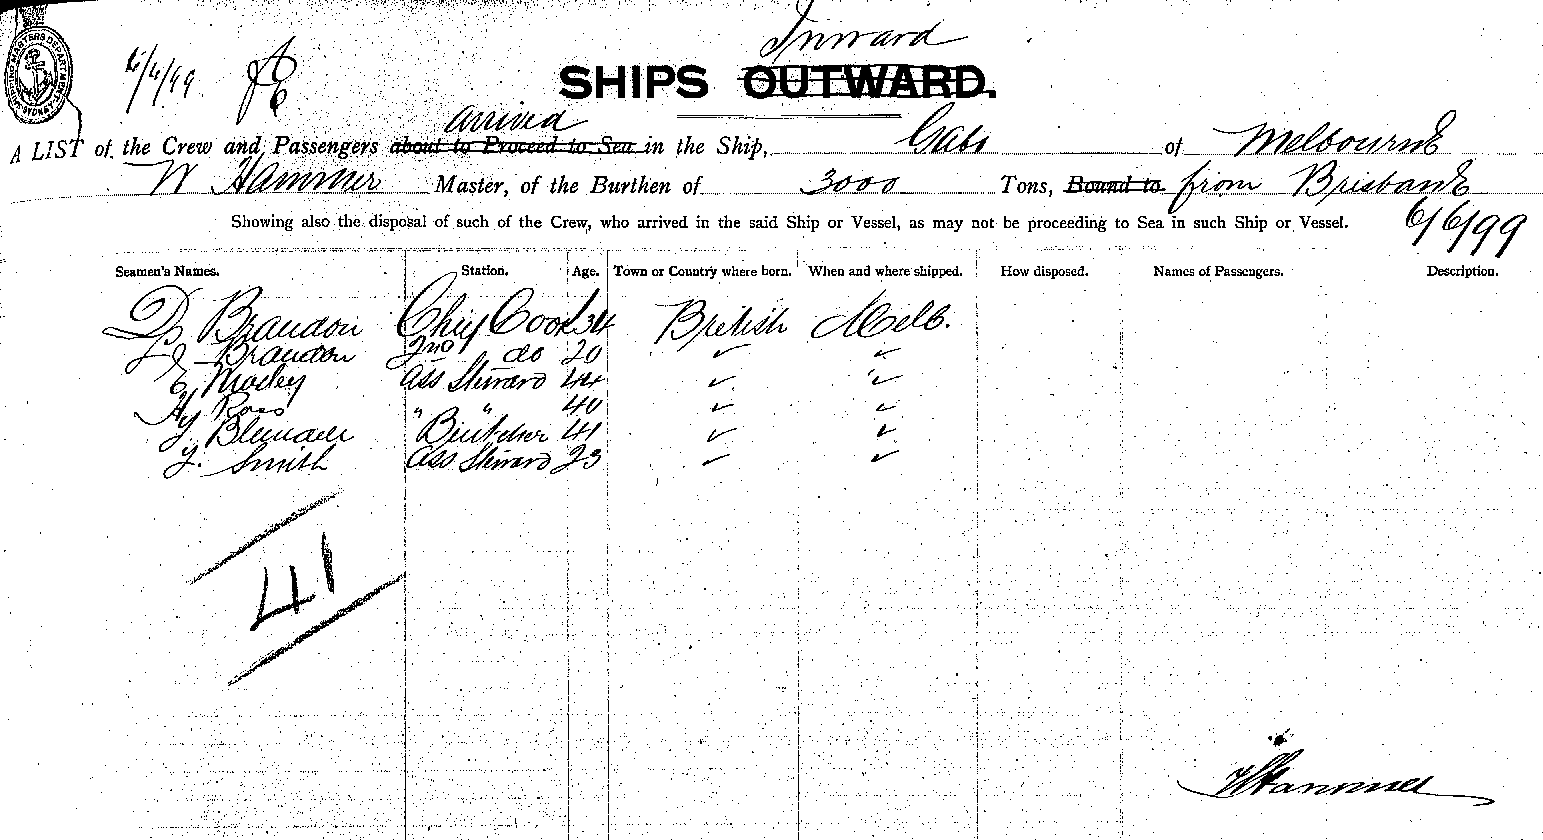 Inward
6/6/99
SHIPS OUTWARD.
arrived
A LIST of the Crew and Passengers about to Proceed to Sea in the Ship, Gabo of Melbourne
W Hammer Master, of the Burthen of 3000 Tons, Bound to from Brisbane
6/6/99
Showing also the disposal of such of the Crew, who arrived in the said Ship or Vessel, as may not be proceeding to Sea in such Ship or Vessel.
Seamen's Names. Station. Age. Town or Country where born. When and where shipped. How disposed. Names of Passengers. Description.
D Brandon Chief Cook 34 British Melb.
J Brandon 2nd do 20 ✓ ✓
E. Ass Steward 44 ✓ ✓
Hy Ross " " 40 ✓ ✓
J. Butcher 41 ✓ ✓
J. Smith Ass Steward 23 ✓ ✓
41
W Hammer